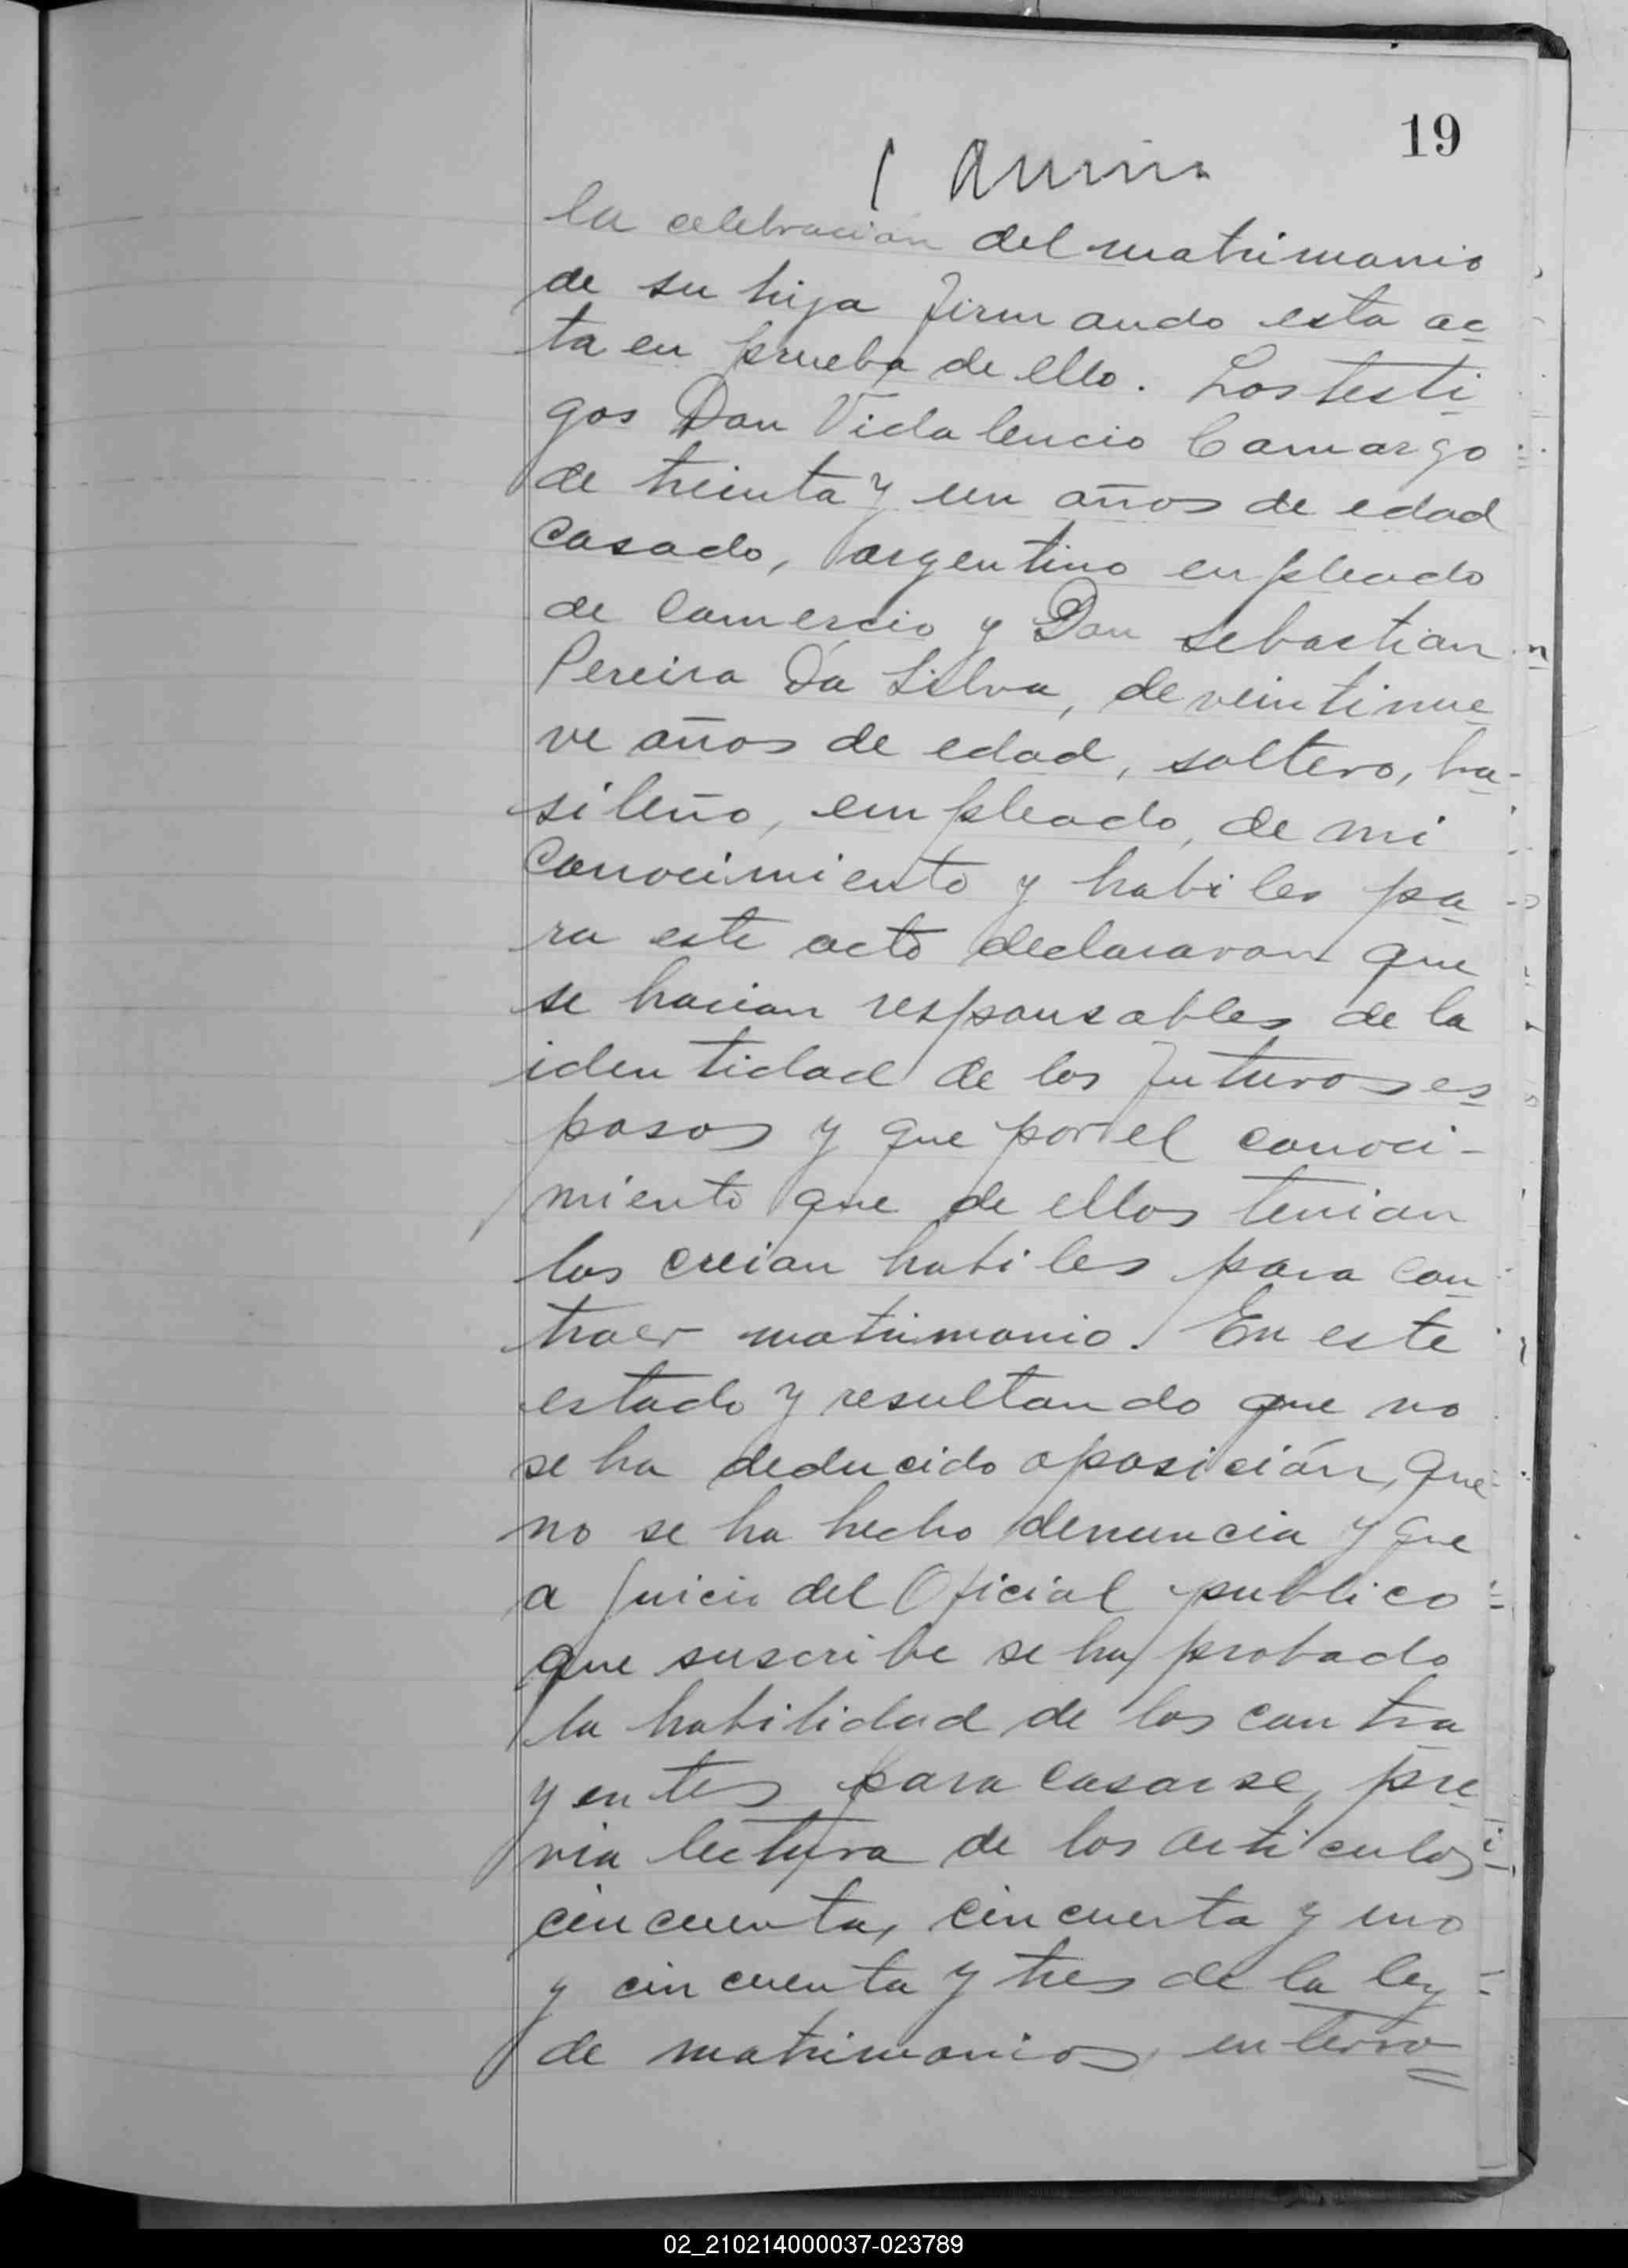 19
la celebracion del matrimonio
de su hija firmando esta ac
ta en prueba de ello. Los testi
gos Don Vidalencio Camargo
de treinta y un años de edad
casado, argentino empleado
de comercio y Don Sebastian
Pereira Da Silva, de veintinue
ve años de edad, soltero, bra-
sileño, empleado, de mi
conocimiento y habiles pa
ra este acto declararon que
se hacian responsables de la
identidad de los futuros es
posos y que por el conoci-
miento que de ellos tenian
los creian habiles para con
traer matrimonio. En este
estado y resultando que no
se ha deducido oposición, que
no se ha hecho denuncia y que
a juicio del Oficial publico
que suscribe se ha probado
la habilidad de los contra
yentes para casarse, pre
via lectura de los articulos
cincuenta, cincuenta y uno
y cincuenta y tres de la ley
de matrimonios, enterro
02_210214000037-023789